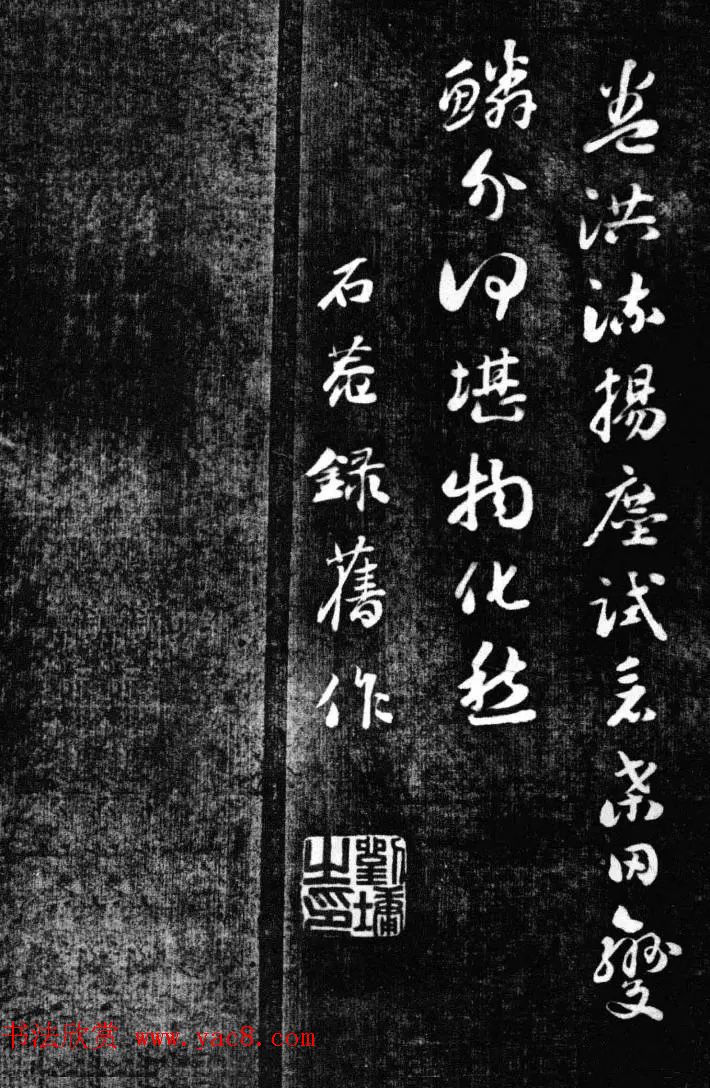 卷洪流揚塵試看桑田變
鱗介何堪物化愁
石菴錄舊作
劉墉之印
书法欣赏 www.yac8.com